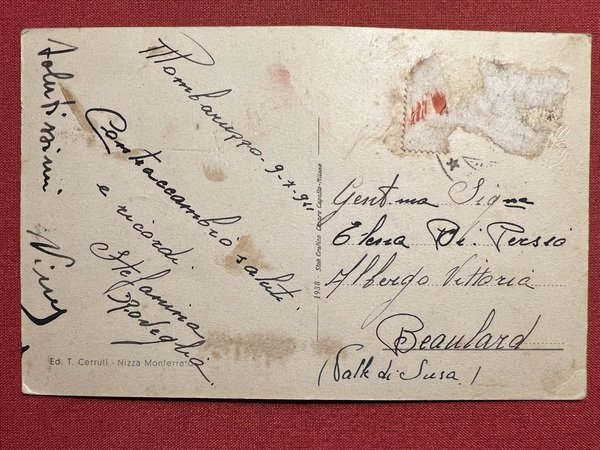 Mombaruzzo - 9-7-941
Contraccambio saluti
e ricordi.
Stefanina
Roveglia.
Salutissimi
Ed. T. Cerruti - Nizza Monferrato
1938 Stab Grafico Cesare Capello - Milano
Gent.ma Sigᵐᵃ
Elena Di Persio
Albergo Vittoria
Beaulard
(Valle di Susa)